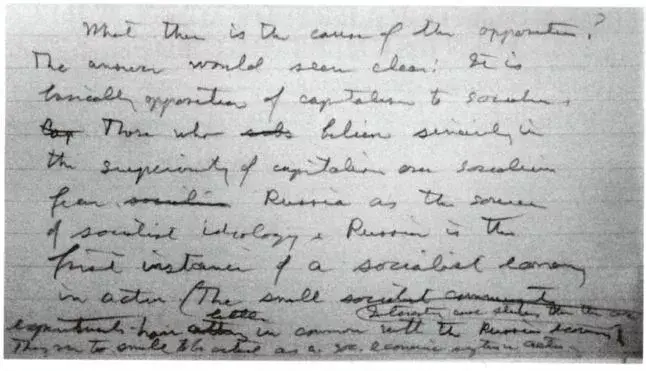 What then is the cause of the opposition?
The answer would seem clear: It is
basically opposition of capitalism to socialism.
Cap Those who believe sincerely in
the superiority of capitalism over socialism
fear socialism Russia as the source
of socialist ideology & Russia is the
first instance of a socialist economy
in action. (The small socialist community
experiments have little in common with the Russian economy
They are too small to be as a economic system in action